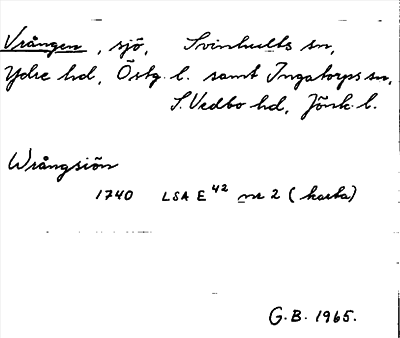 Vrången, sjö, Svinhults sn,
Ydre hd, Östg. l. samt Ingatorps sn,
S. Vedbo hd, Jönk. l.
Wrångsiön
1740 LSA E 42 nr 2 (karta)
G.B. 1965.